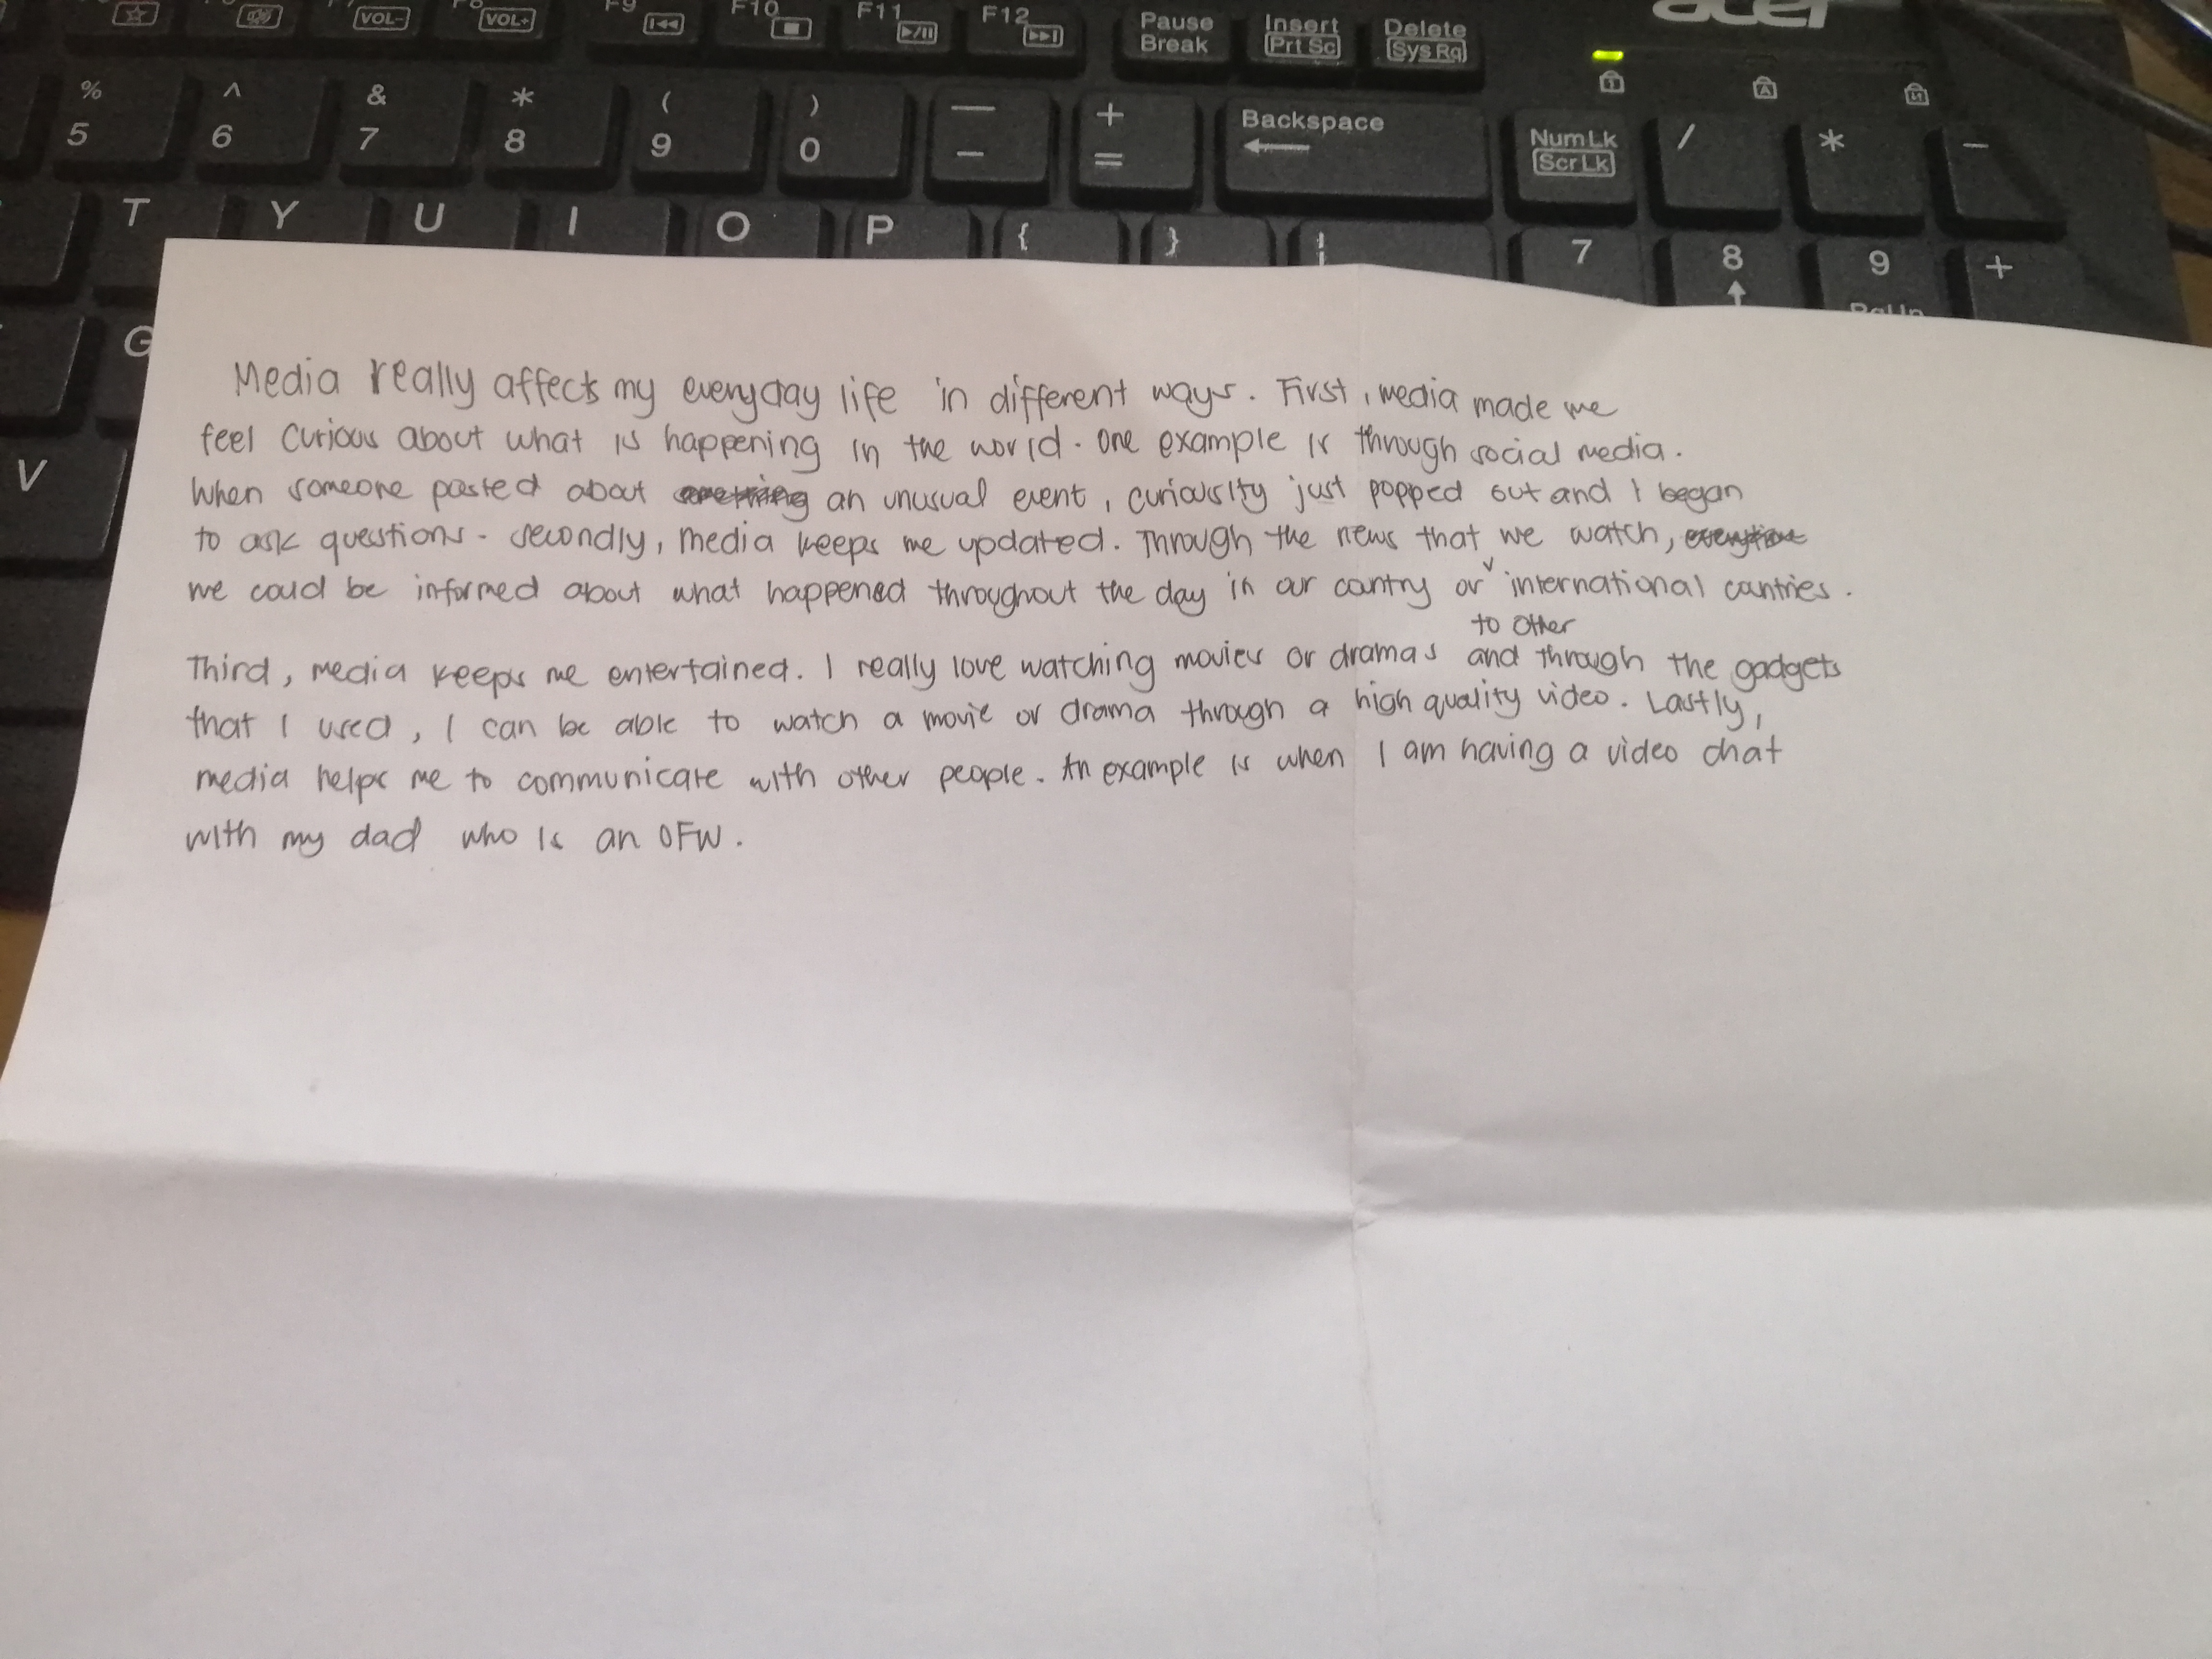 acer
F9 F10 F11 F12 Pause Break Insert Prt Sc Delete Sys Rq
VOL- VOL+
% 5 ^ 6 & 7 * 8 ( 9 ) 0 — - + = Backspace NumLk ScrLk / * -
T Y U I O P { } 7 8 9 +
G
V
Media really affects my everyday life in different ways. First, media made me
feel curious about what is happening in the world. One example is through social media.
When someone posted about an unusual event, curiousity just popped out and I began
to ask questions. Secondly, media keeps me updated. Through the news that we watch,
we could be informed about what happened throughout the day in our country or ˅ international countries.
to other
Third, media keeps me entertained. I really love watching movies or dramas and through the gadgets
that I used, I can be able to watch a movie or drama through a high quality video. Lastly,
media helps me to communicate with other people. An example is when I am having a video chat
with my dad who is an OFW.